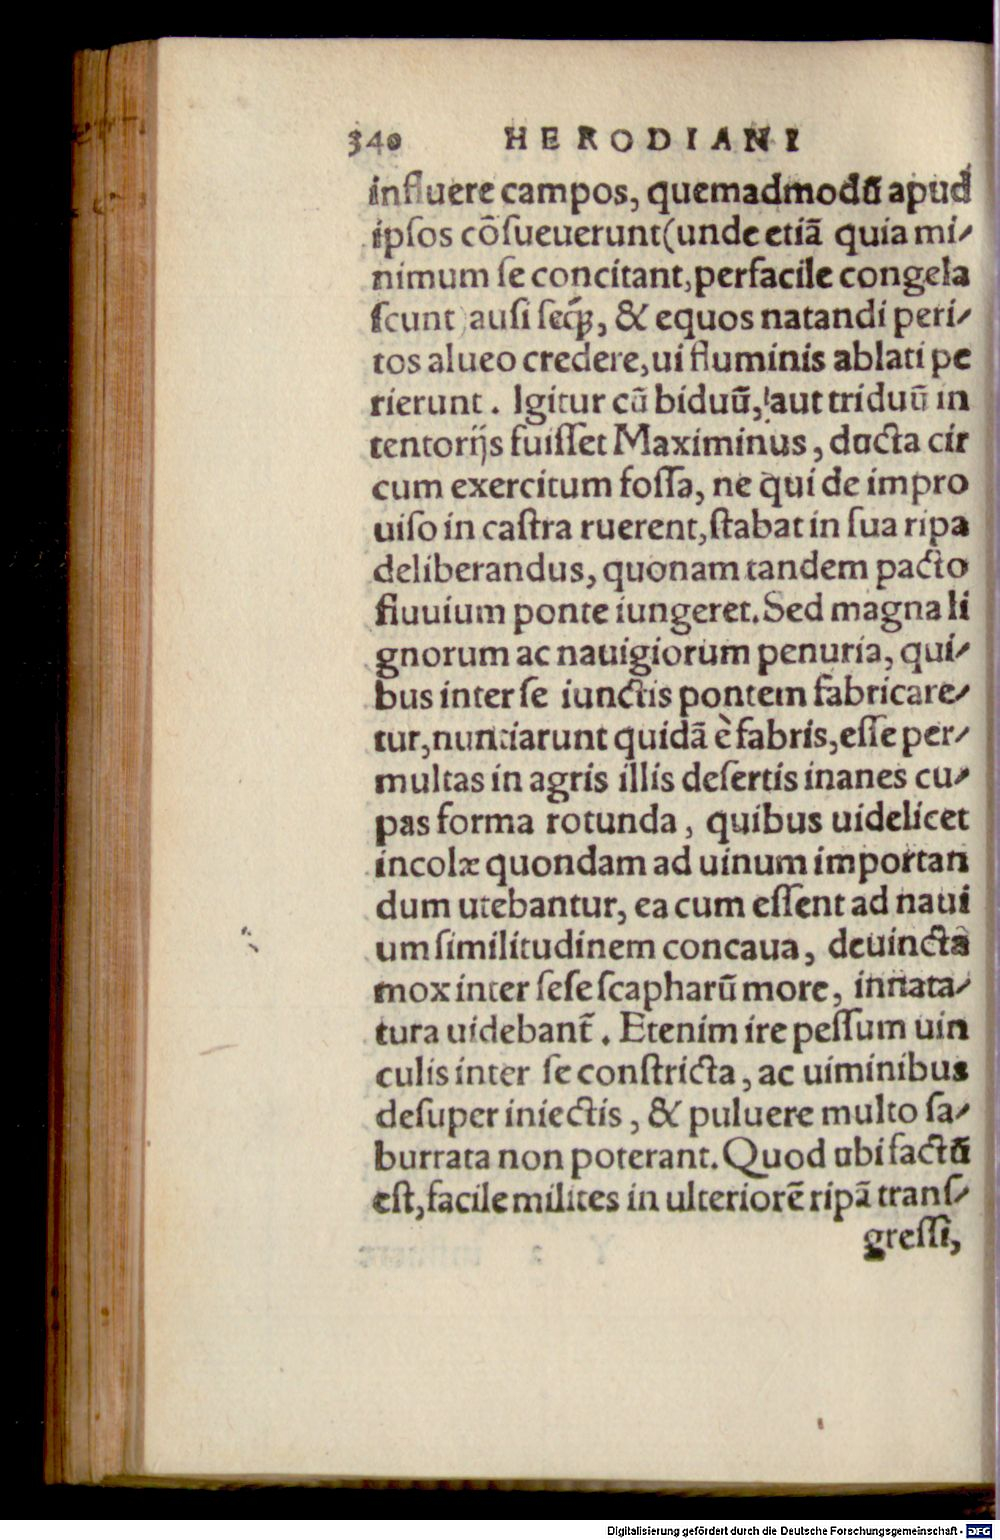 340 HERODIANI
influere campos, quemadmodū apud
ipſos cōſueuerunt(unde etiā quia mi-
nimum ſe concitant, perfacile congela
ſcunt )auſi ſeq́ꝫ, & equos natandi peri-
tos alueo credere, ui fluminis ablati pe
rierunt. Igitur cū biduū, aut triduū in
tentorijs fuiſſet Maximinus, ducta cir
cum exercitum foſſa, ne qui de impro
uiſo in caſtra ruerent, ſtabat in ſua ripa
deliberandus, quonam tandem pacto
fluuium ponte iungeret. Sed magna li
gnorum ac nauigiorum penuria, qui-
bus inter ſe iunctis pontem fabricare-
tur, nuntiarunt quidā è fabris, eſſe per-
multas in agris illis deſertis inanes cu-
pas forma rotunda, quibus uidelicet
incolæ quondam ad uinum importan
dum utebantur, ea cum eſſent ad naui
um ſimilitudinem concaua, deuincta
mox inter ſeſe ſcapharū more, innata-
tura uidebant̃. Etenim ire peſſum uin
culis inter ſe conſtricta, ac uiminibus
deſuper iniectis, & puluere multo ſa-
burrata non poterant. Quod ubi factū
eſt, facile milites in ulteriorē ripā tranſ-
greſſi,
Digitalisierung gefördert durch die Deutsche Forschungsgemeinschaft - DFG